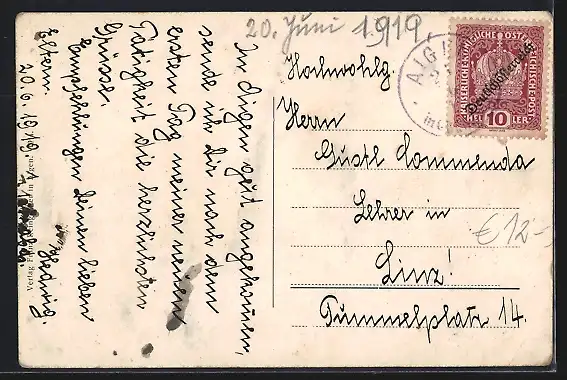 20. Juni 1919.
In Aigen gut angekommen,
sende ich Dir nach dem
ersten Tag meiner neuen
Tätigkeit die herzlichsten
Grüsse.
Empfehlungen Deinen lieben
Eltern.
Hedwig.
20. 6. 1919.
Verlag
Hochwohlg.
Herrn
Gustl Commenda
Lehrer in
Linz!
Tummelplatz 14.
AIGEN
KAISERLICHE KÖNIGLICHE ÖSTERREICHISCHE POST
Deutschösterreich
HEL 10 LER
€ 12-